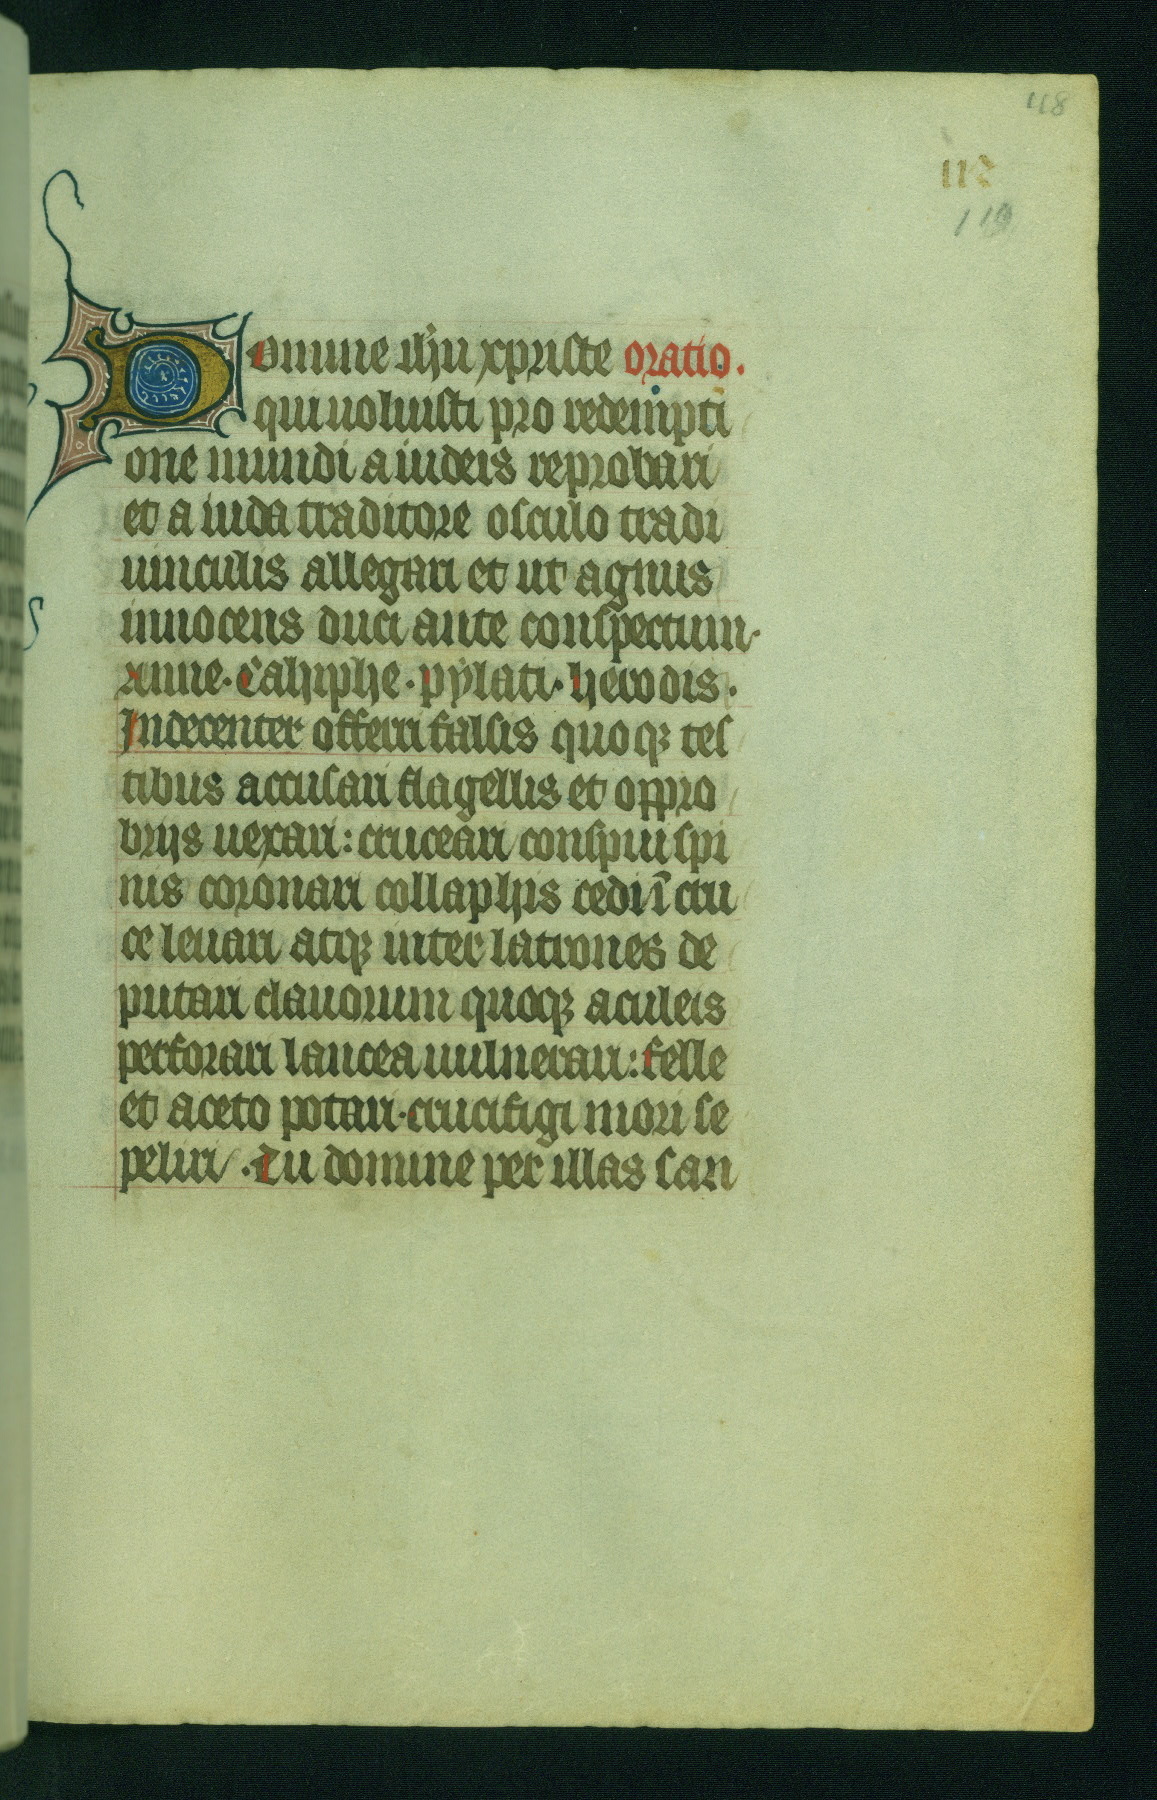 118
112
119
Domine ihu xpriste oratio.
qui uoluisti pro redempti
one mundi a iudeis reprobari
et a iuda traditore osculo tradi
uinculis allegari et ut agnus
innocens duci ante conspectum
Anne. Cahiphe. pylati. herodis.
Indecenter offerri falsis quoqȝ tes
tibus accusari flagellis et oppro
brijs uexari: cruceari conspui spi
nis coronari collaphis cedi ī cru
ce leuari atqȝ inter latrones de
putari clauorum quoqȝ aculeis
perforari lancea uulnerari: felle
et aceto potari. crucifigi mori se
peliri. Tu domine per illas san